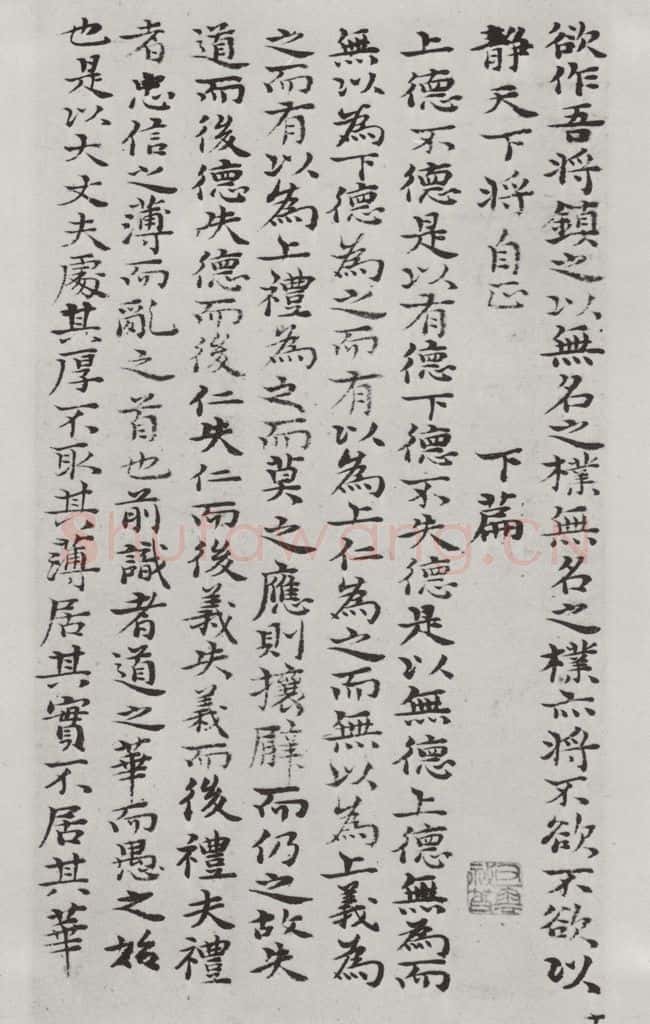 欲作吾将鎮之以無名之樸無名之樸亦将不欲不欲以
静天下将自正 下篇
上德不德是以有德下德不失德是以無德上德無為而
無以為下德為之而有以為上仁為之而無以為上義為
之而有以為上禮為之而莫之應則攘臂而仍之故失
道而後德失德而後仁失仁而後義失義而後禮夫禮
者忠信之薄而亂之首也前識者道之華而愚之始
也是以大丈夫處其厚不取其薄居其實不居其華
shufawang.CN